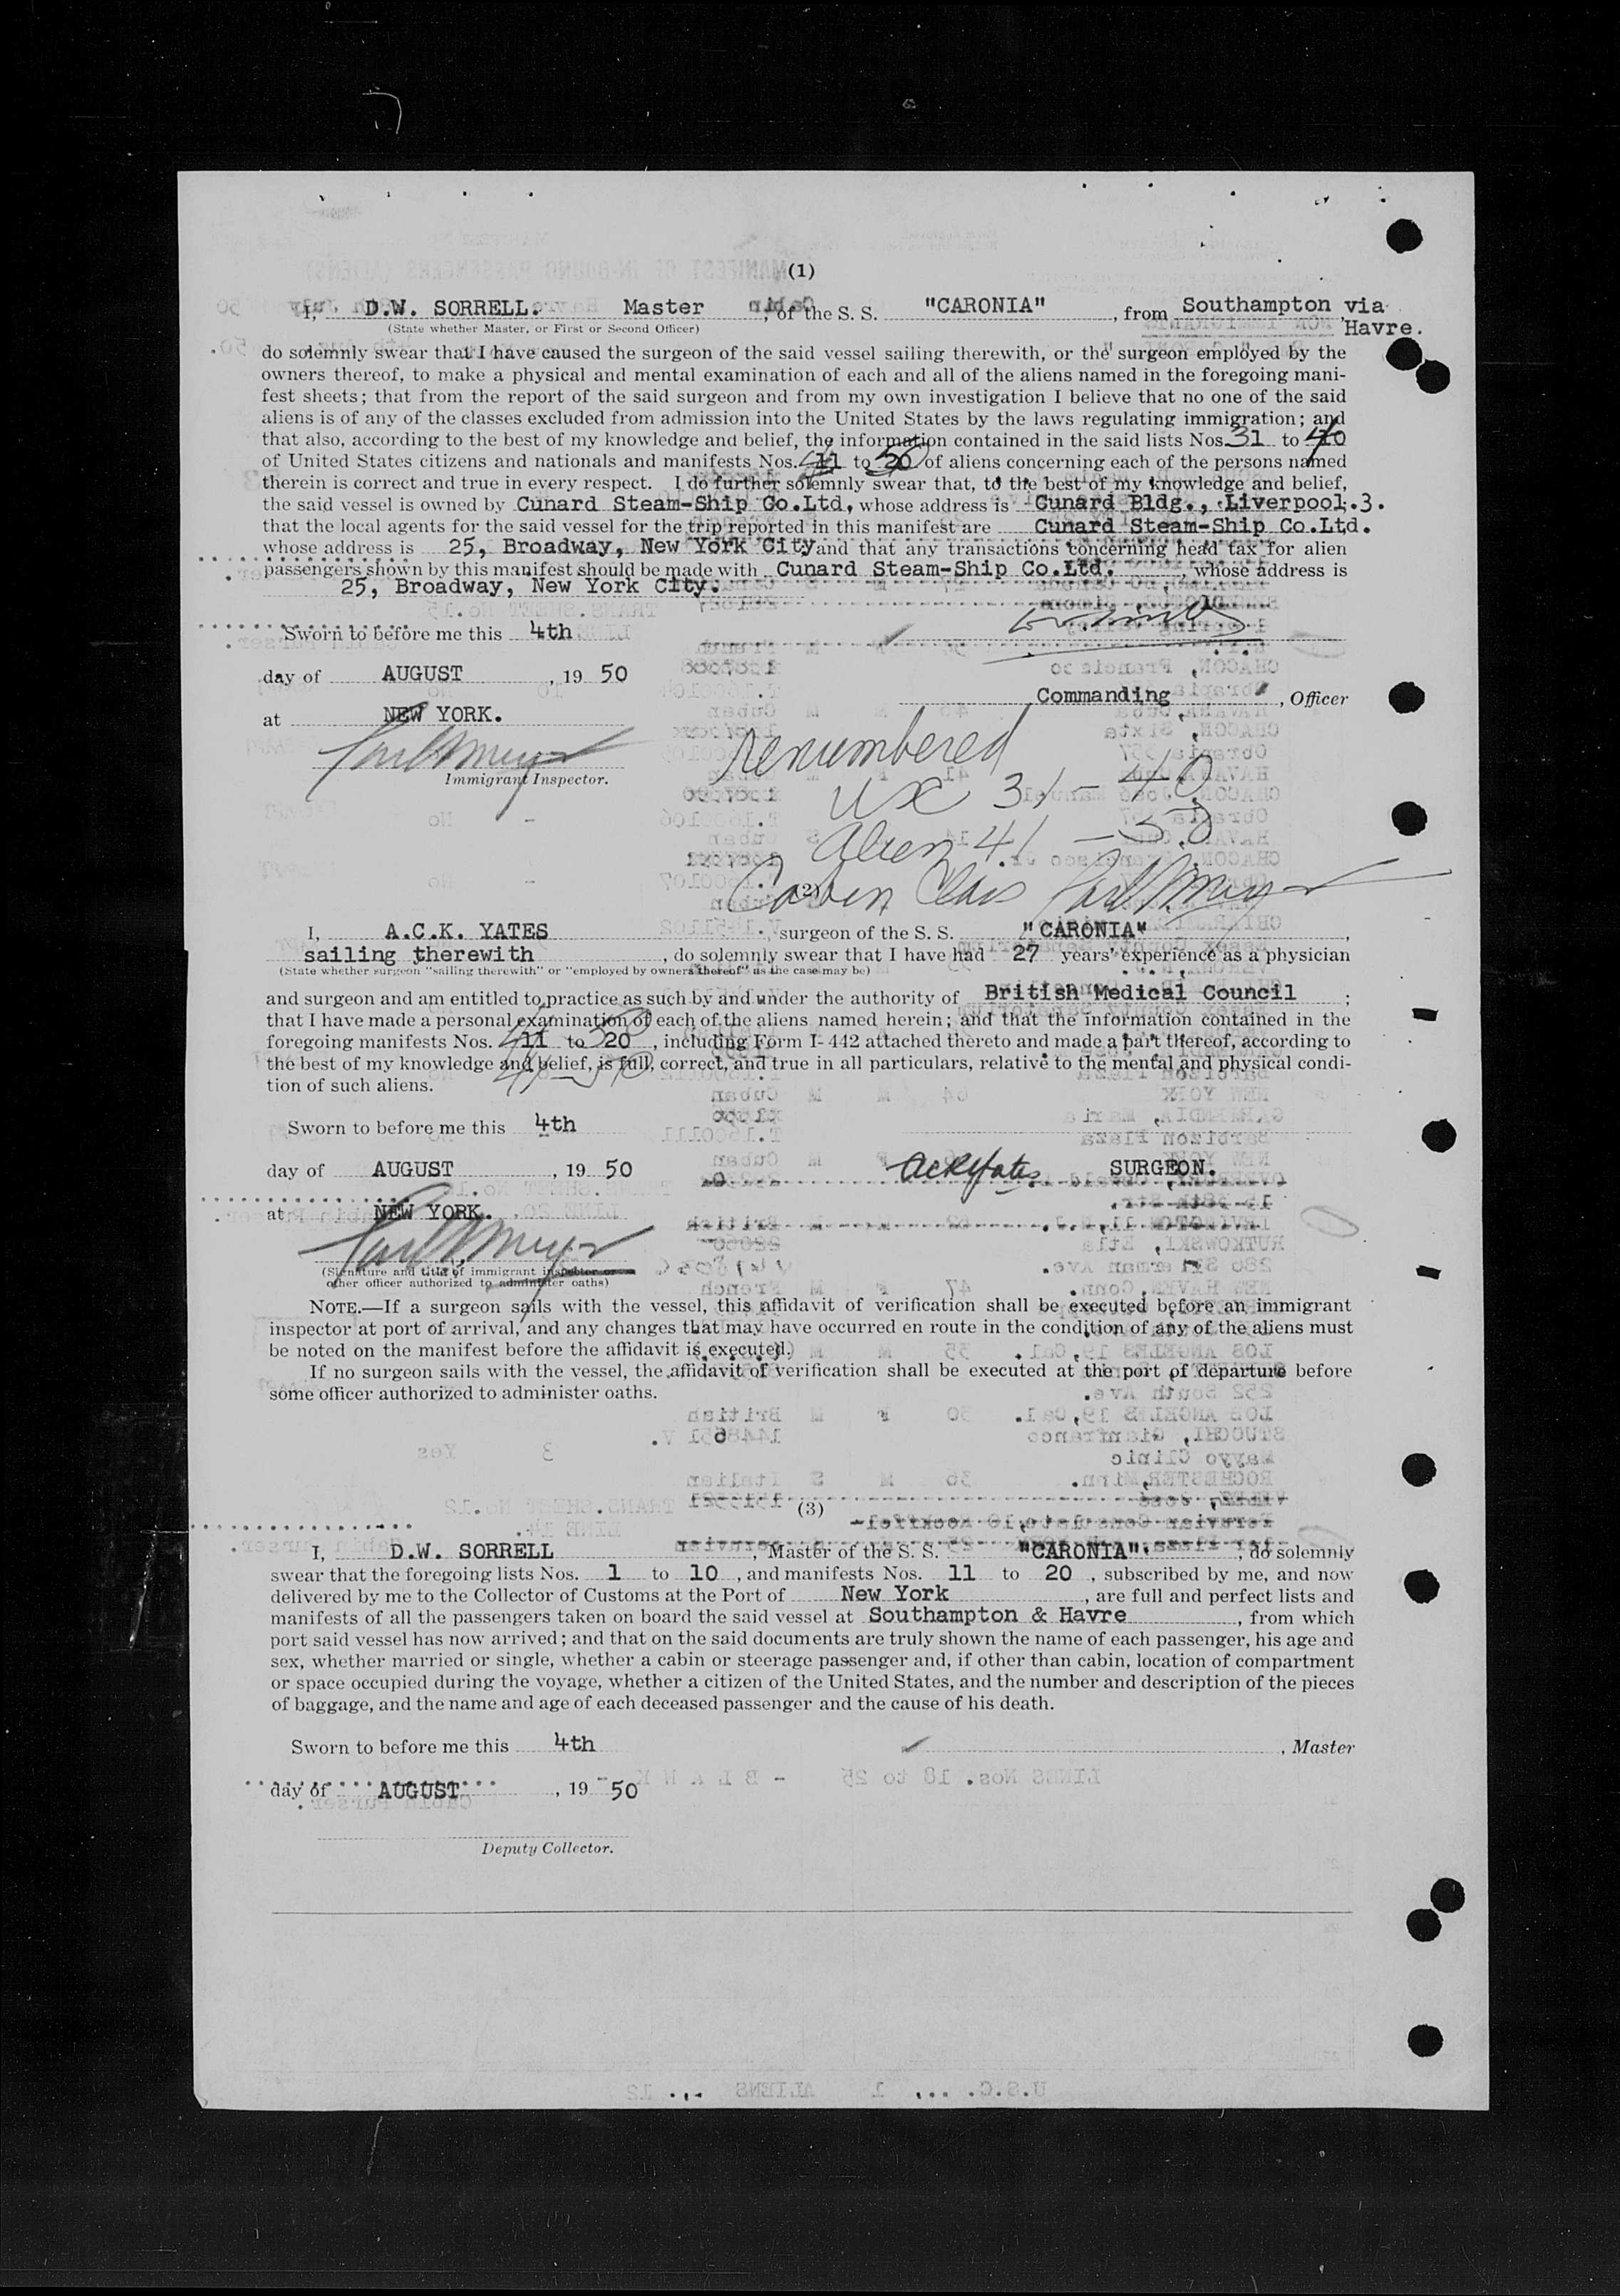 (1)
I, D.W. SORRELL. Master , of the S. S. "CARONIA" , from Southampton via
(State whether Master, or First or Second Officer) Havre.
do solemnly swear that I have caused the surgeon of the said vessel sailing therewith, or the surgeon employed by the
owners thereof, to make a physical and mental examination of each and all of the aliens named in the foregoing mani-
fest sheets; that from the report of the said surgeon and from my own investigation I believe that no one of the said
aliens is of any of the classes excluded from admission into the United States by the laws regulating immigration; and
that also, according to the best of my knowledge and belief, the information contained in the said lists Nos. 31 to 40
of United States citizens and nationals and manifests Nos. 11 to 20 of aliens concerning each of the persons named
therein is correct and true in every respect. I do further solemnly swear that, to the best of my knowledge and belief,
the said vessel is owned by Cunard Steam-Ship Co.Ltd, whose address is Cunard Bldg., Liverpool.3.
that the local agents for the said vessel for the trip reported in this manifest are Cunard Steam-Ship Co.Ltd.
whose address is 25, Broadway, New York City and that any transactions concerning head tax for alien
passengers shown by this manifest should be made with Cunard Steam-Ship Co.Ltd. , whose address is
25, Broadway, New York City.
Sworn to before me this 4th
day of AUGUST , 19 50
Commanding , Officer
at NEW YORK.
Immigrant Inspector.
renumbered
USC 31 - 40
Alien 41 - 50
Cabin Class
(2)
I, A.C.K. YATES , surgeon of the S. S. "CARONIA" ,
sailing therewith , do solemnly swear that I have had 27 years' experience as a physician
(State whether surgeon "sailing therewith" or "employed by owners thereof" as the case may be)
and surgeon and am entitled to practice as such by and under the authority of British Medical Council ;
that I have made a personal examination of each of the aliens named herein; and that the information contained in the
foregoing manifests Nos. 11 to 20 , including Form I-442 attached thereto and made a part thereof, according to
the best of my knowledge and belief, is full, correct, and true in all particulars, relative to the mental and physical condi-
tion of such aliens.
41 - 50
Sworn to before me this 4th
day of AUGUST , 19 50
ACKYates SURGEON.
at NEW YORK.
(Signature and title of immigrant inspector or
other officer authorized to administer oaths)
NOTE.—If a surgeon sails with the vessel, this affidavit of verification shall be executed before an immigrant
inspector at port of arrival, and any changes that may have occurred en route in the condition of any of the aliens must
be noted on the manifest before the affidavit is executed.
If no surgeon sails with the vessel, the affidavit of verification shall be executed at the port of departure before
some officer authorized to administer oaths.
(3)
I, D.W. SORRELL , Master of the S. S. "CARONIA". , do solemnly
swear that the foregoing lists Nos. 1 to 10 , and manifests Nos. 11 to 20 , subscribed by me, and now
delivered by me to the Collector of Customs at the Port of New York , are full and perfect lists and
manifests of all the passengers taken on board the said vessel at Southampton & Havre , from which
port said vessel has now arrived; and that on the said documents are truly shown the name of each passenger, his age and
sex, whether married or single, whether a cabin or steerage passenger and, if other than cabin, location of compartment
or space occupied during the voyage, whether a citizen of the United States, and the number and description of the pieces
of baggage, and the name and age of each deceased passenger and the cause of his death.
Sworn to before me this 4th
, Master
day of AUGUST , 19 50
Deputy Collector.